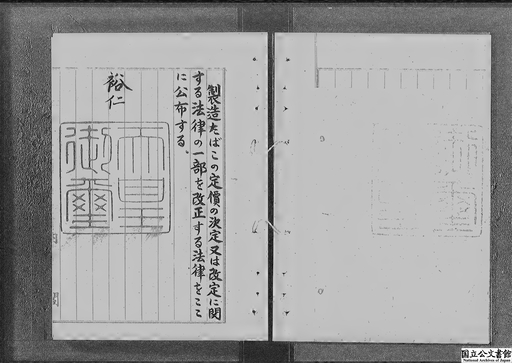 製造たばこの定價の決定又は改定に関
する法律の一部を改正する法律をここ
に公布する。
裕仁
天皇
御璽
国立公文書館
National Archives of Japan